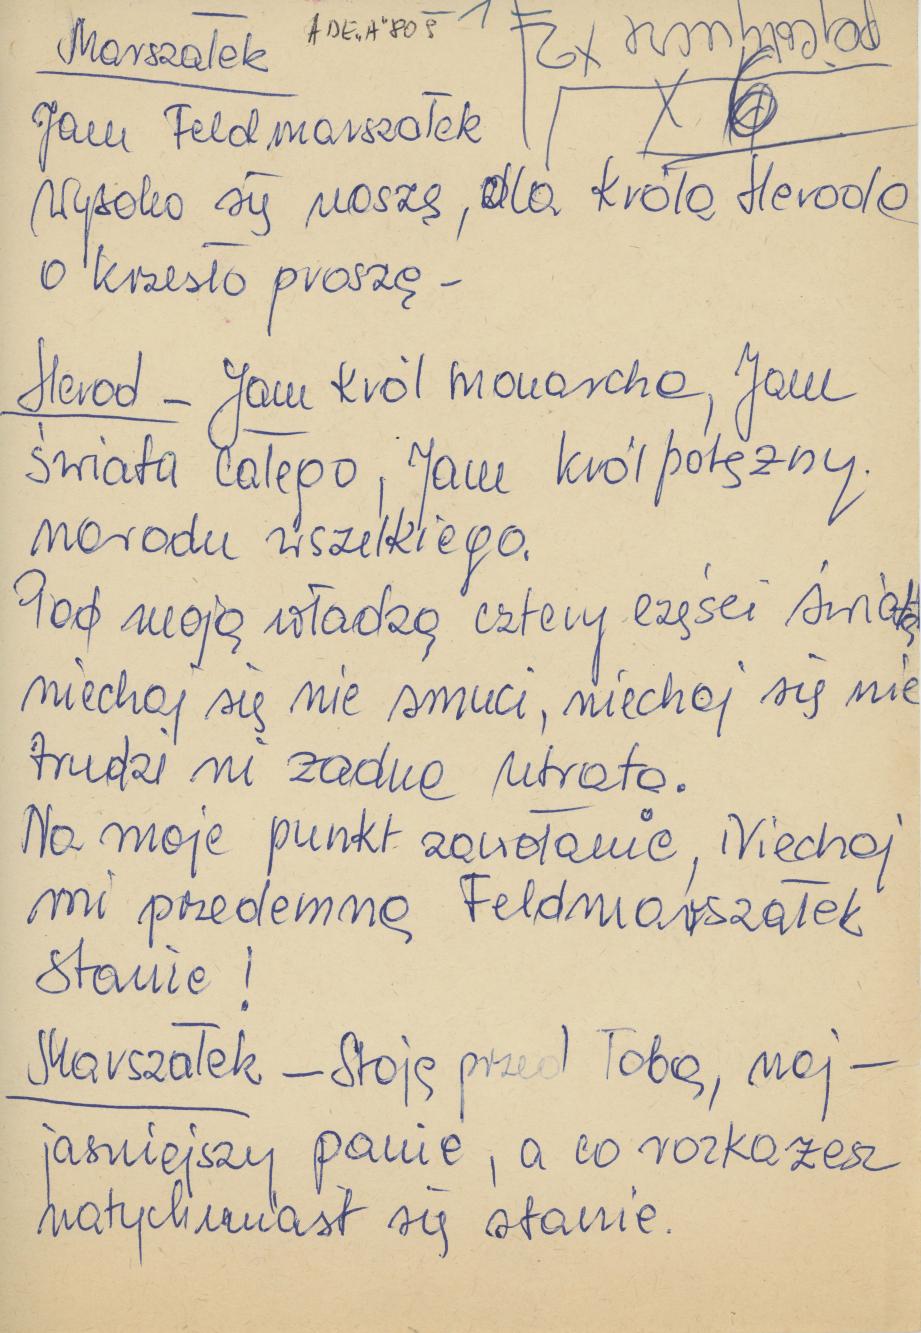 Marszałek
Jam Feldmarszałek
Wysoko się noszę, dla króla Heroda
o krzesło proszę –
Herod – Jam król monarcha, Jam
świata całego, Jam król potężny.
narodu wszelkiego.
Pod moją władzą cztery części świata
niechaj się nie smuci, niechaj się nie
trudzi ni żadną utratą.
Na moje punkt zawołanie, Niechaj
mi przedemną Feldmarszałek
stanie!
Marszałek – Stoję przed Tobą, naj–
jaśniejszy panie, a co rozkażesz
natychmiast się stanie.